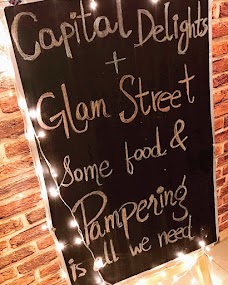 Capital Delights
+
Glam Street
Some food &
Pampering
is all we need